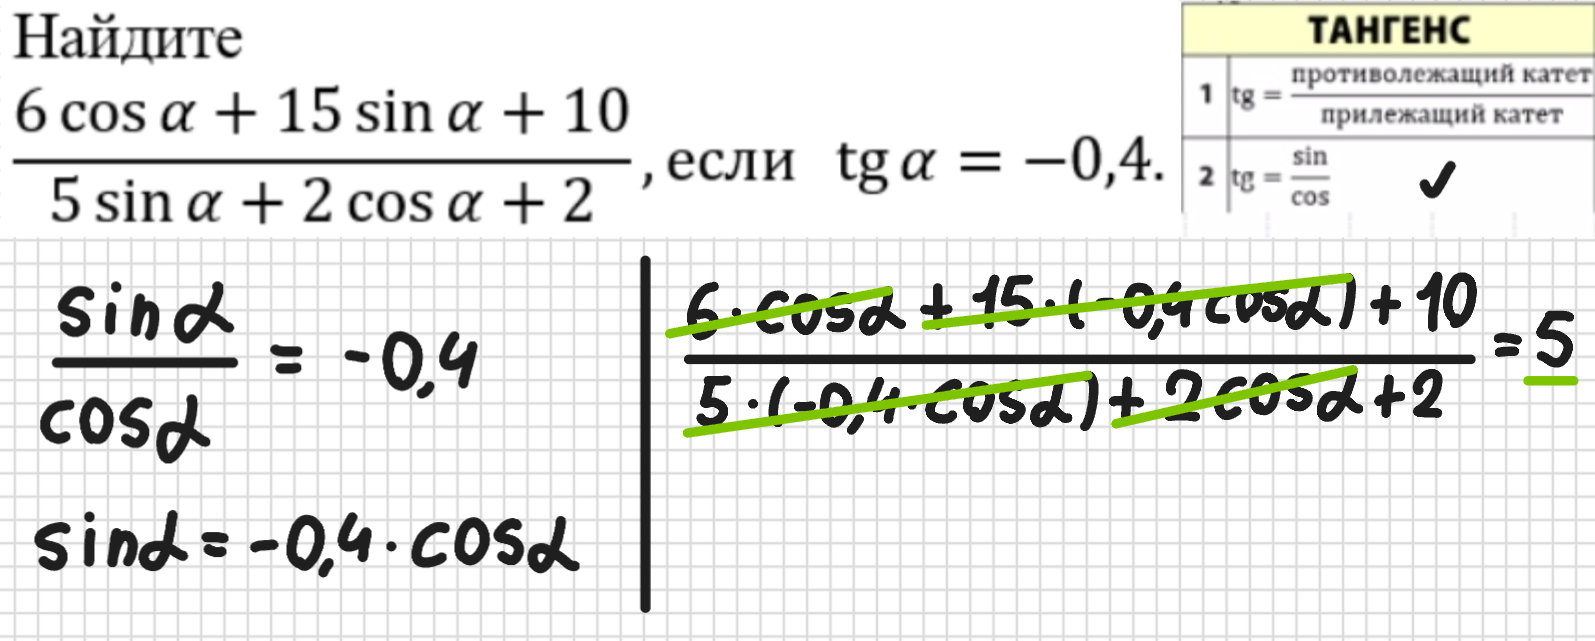 Найдите
6 cos α + 15 sin α + 10
5 sin α + 2 cos α + 2
, если tg α = −0,4.
ТАНГЕНС
1 tg = противолежащий катет
прилежащий катет
2 tg = sin
cos ✓
sinα
cosα
= -0,4
sinα = -0,4 · cosα
6 · cosα + 15 · (-0,4 cosα) + 10
5 · (-0,4 · cosα) + 2 cosα + 2
= 5